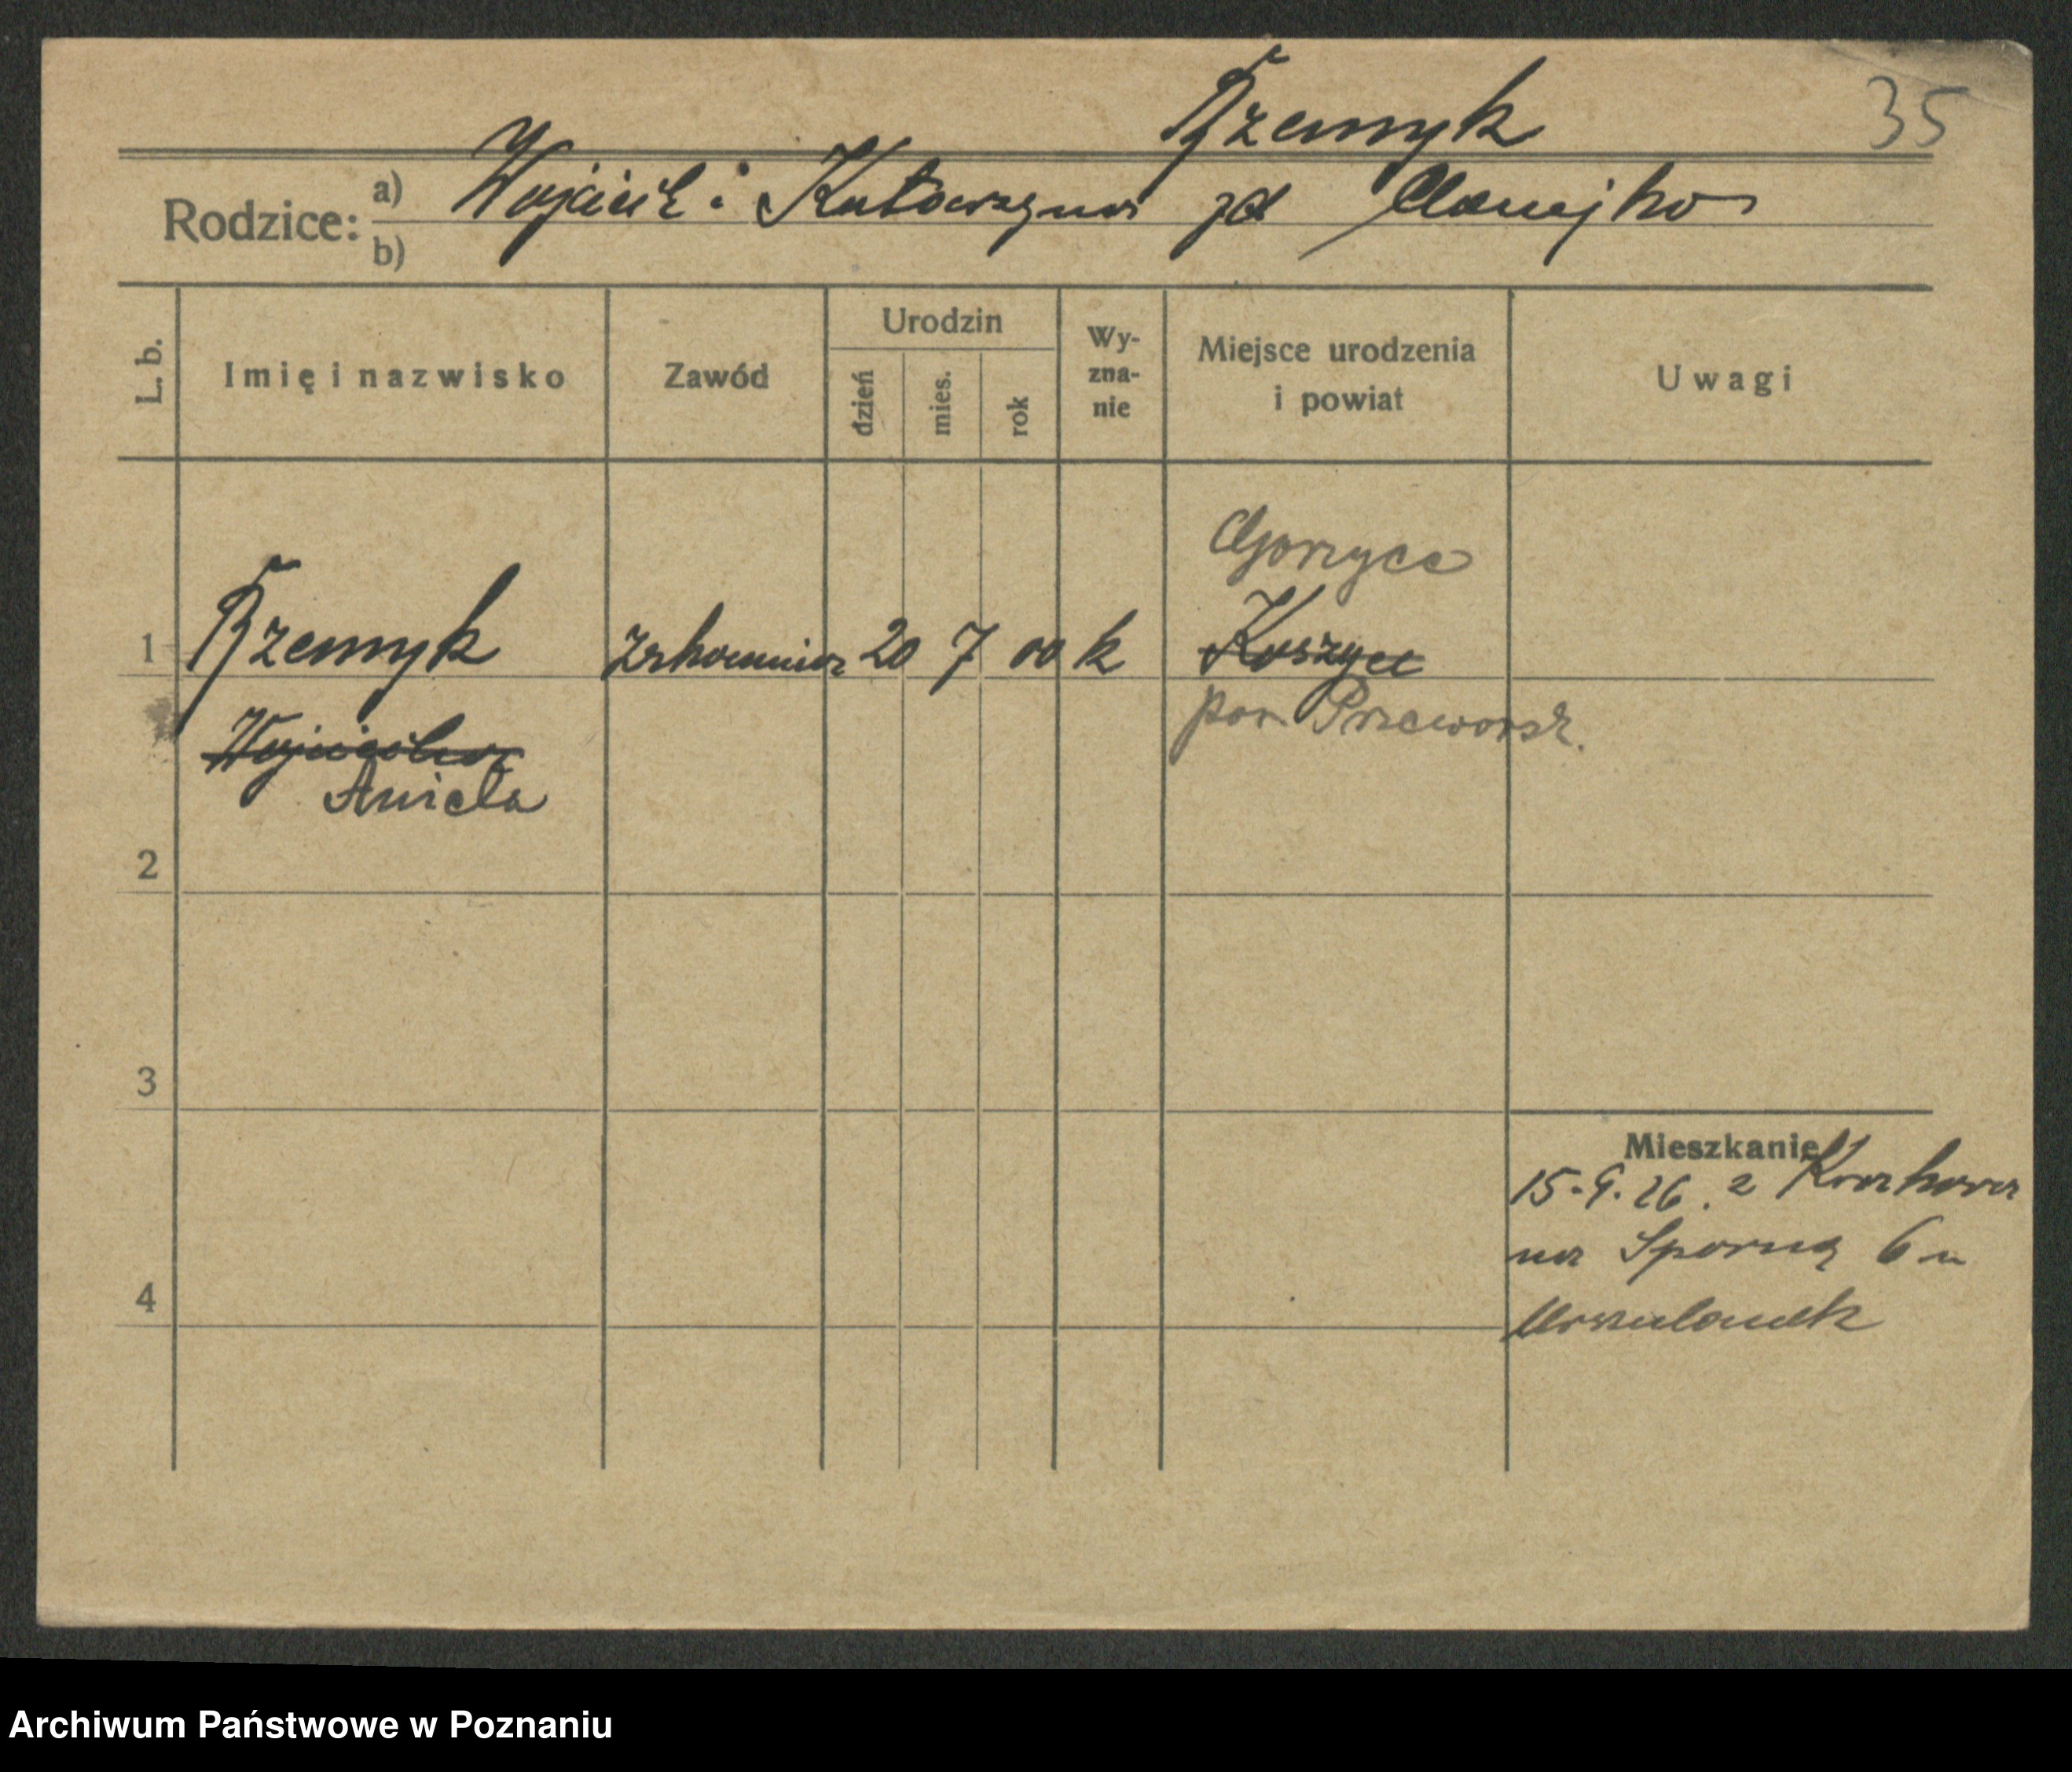 Rzemyk
35
Rodzice: a) Wojciech i Katarzyna zd
b)
L. b.
Imię i nazwisko
Zawód
Urodzin
dzień
mies.
rok
Wy-
zna-
nie
Miejsce urodzenia
i powiat
Uwagi
Gorzyce
1 Rzemyk zakonnica 20 7 00 k Koszyce
pow. Przeworsk.
Aniela
2
3
Mieszkanie
15.9.26. z Krakowa
na Sporną 6 u
4
Urszulanek
Archiwum Państwowe w Poznaniu